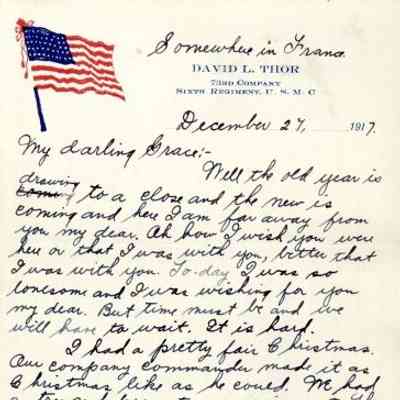 Somewhere in France
DAVID L. THOR
73RD COMPANY
SIXTH REGIMENT, U. S. M. C
December 27, 1917.
My darling Grace:-
Well the old year is
drawing
coming to a close and the new is
coming and here I am far away from
you my dear. Oh how I wish you were
here or that I was with you, better that
I was with you. To-day I was so
lonesome and I was wishing for you
my dear. But time must be and we
will have to wait. It is hard.
I had a pretty fair Christmas.
Our company commander made it as
Christmas like as he could. We had